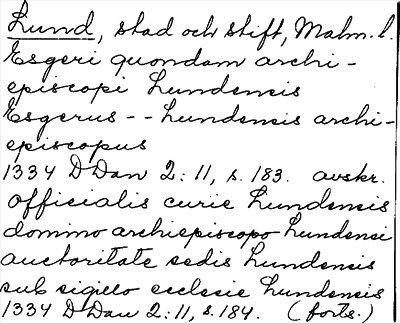 Lund, stad och stift, Malm. l.
Esgeri quondam archi-
episcopi Lundensis
Esgerus -- Lundensis archi-
episcopus
1334 DDan 2:11, s. 183. avskr.
officialis curie Lundensis
domino archiepiscopo Lundensi
auctoritate sedis Lundensis
sub sigillo ecclesie Lundensis
1334 DDan 2:11, s. 184. (forts.)